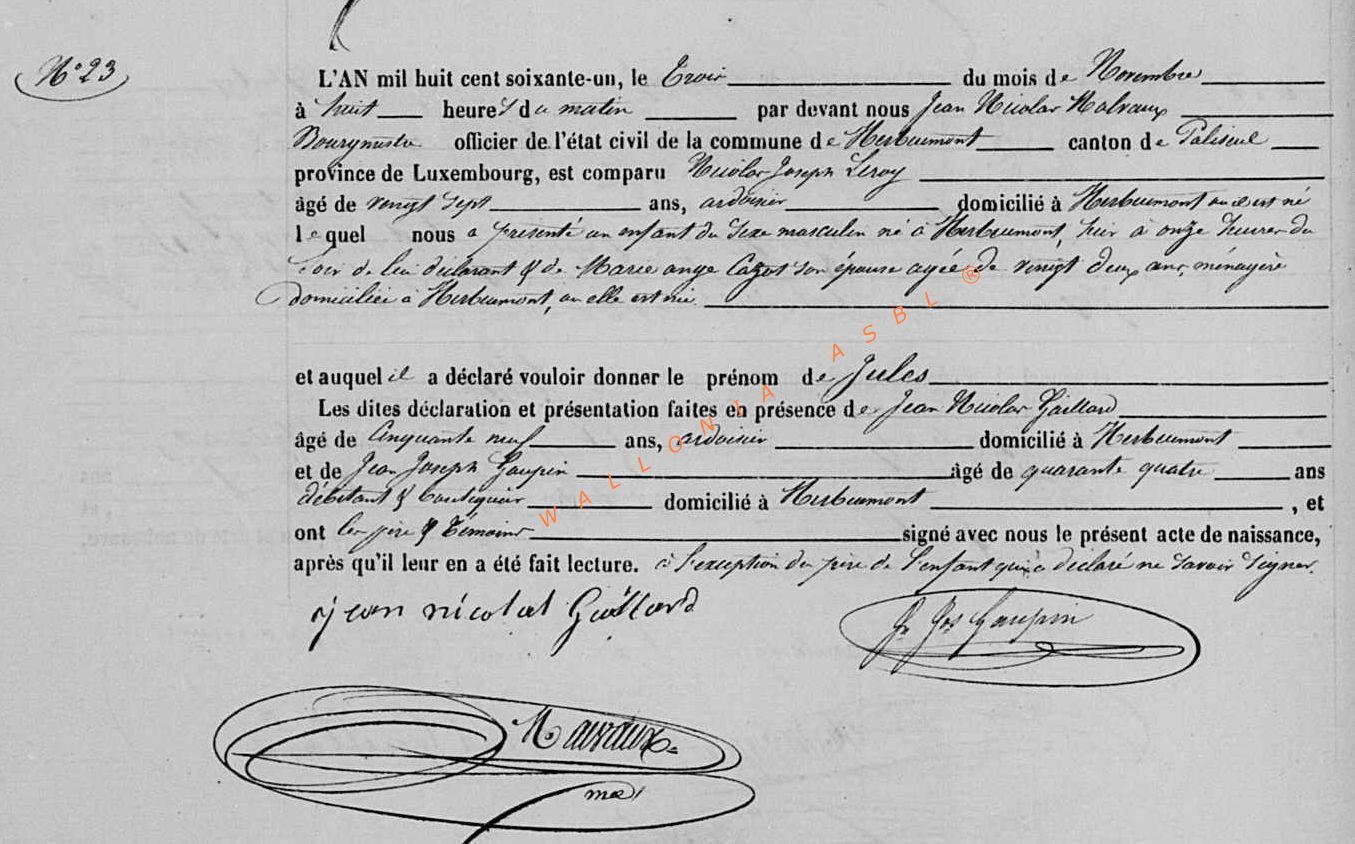 N° 23
L'AN mil huit cent soixante-un, le Trois du mois de Novembre
à huit heures du matin par devant nous Jean Nicolas
Bourgmestre officier de l'état civil de la commune de Herbeumont canton de Paliseul
province de Luxembourg, est comparu Nicolas Joseph Leroy
âgé de vingt sept ans, ardoisier domicilié à Herbeumont où il est né
lequel nous a présenté un enfant du sexe masculin né à Herbeumont, hier à onze heures du
soir de lui déclarant & de Marie ange Cazot son épouse agée de vingt deux ans, ménagère
domiciliée à Herbeumont, où elle est née.
et auquel il a déclaré vouloir donner le prénom de Jules
Les dites déclaration et présentation faites en présence de Jean Nicolas Gaillard
âgé de Cinquante neuf ans, ardoisier domicilié à Herbeumont
et de Jean Joseph Gaupin âgé de quarante quatre ans
débitant & boutiquier domicilié à Herbeumont , et
ont les père & témoins signé avec nous le présent acte de naissance,
après qu'il leur en a été fait lecture. à l'exception du père de l'enfant qui a déclaré ne savoir signer.
jean nicolas Gaillard
Jn Jos Gaupin
WALLONIA ASBL ®